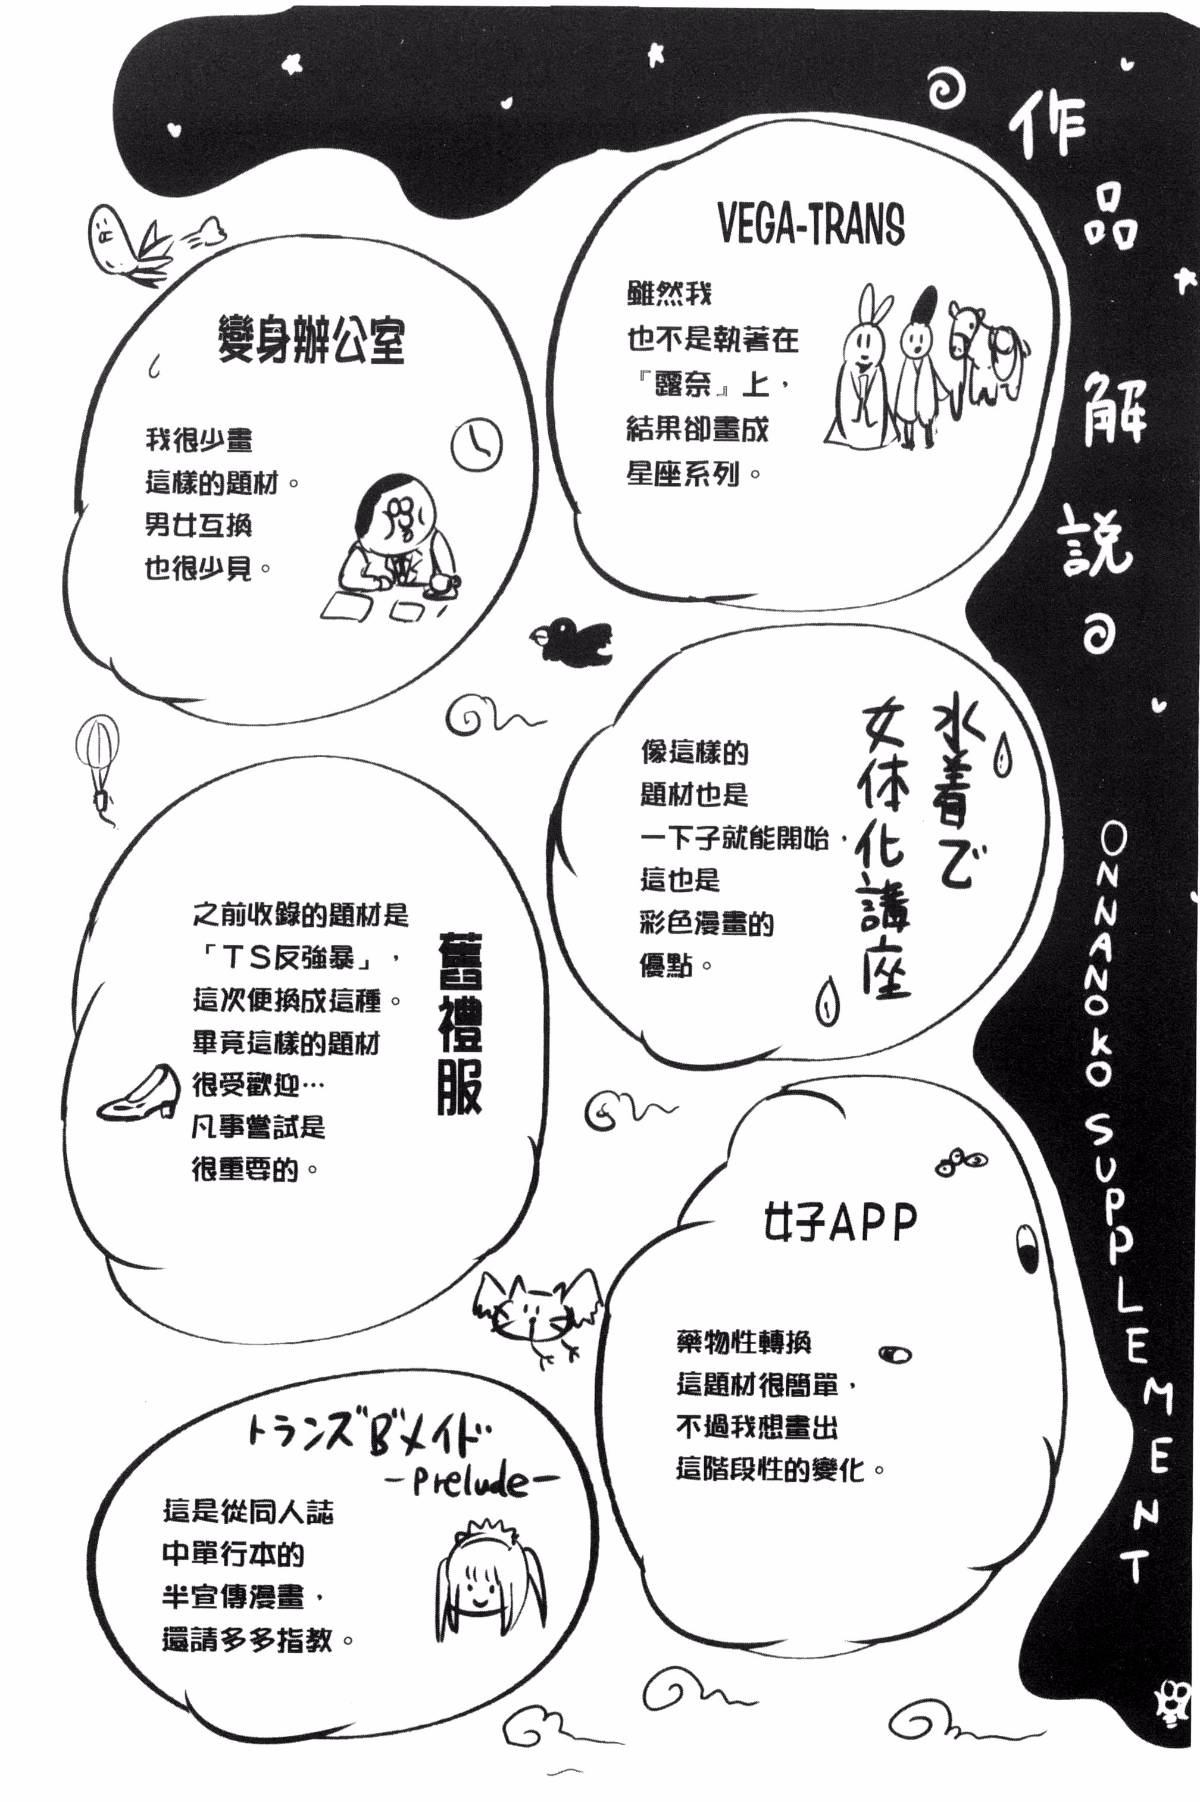 作品解説
ONNANOKO SUPPLEMENT
VEGA-TRANS
雖然我
也不是執著在
『露奈』上，
結果卻畫成
星座系列。
水着で
女体化講座
像這樣的
題材也是
一下子就能開始，
這也是
彩色漫畫的
優點。
女子APP
藥物性轉換
這題材很簡單，
不過我想畫出
這階段性的變化。
變身辦公室
我很少畫
這樣的題材。
男女互換
也很少見。
舊禮服
之前收錄的題材是
「TS反強暴」，
這次便換成這種。
畢竟這樣的題材
很受歡迎…
凡事嘗試是
很重要的。
トランズ"B"メイド
-Prelude-
這是從同人誌
中單行本的
半宣傳漫畫，
還請多多指教。